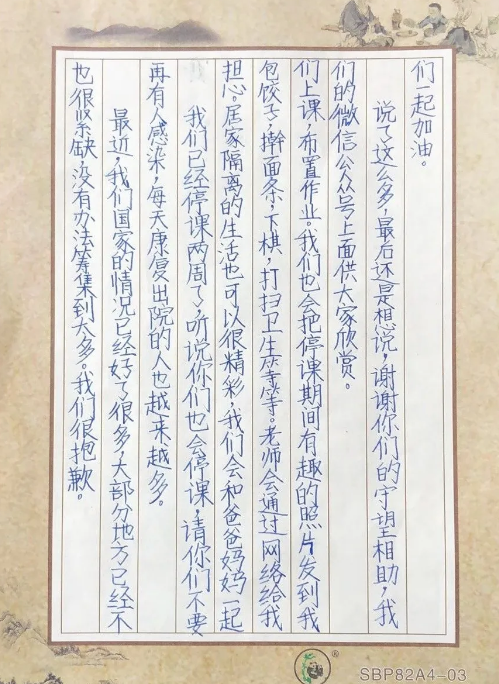 也很紧缺,没有办法筹集到太多。我们很抱歉。
最近,我们国家的情况已经好了很多,大部分地方已经不
再有人感染,每天康复出院的人也越来越多。
我们已经停课两周了,听说你们也会停课,请你们不要
担心。居家隔离的生活也可以很精彩,我们会和爸爸妈妈一起
包饺子,擀面条,下棋,打扫卫生等等。老师会通过网络给我
们上课,布置作业。我们也会把停课期间有趣的照片发到我
们的微信公众号上面供大家欣赏。
说了这么多,最后还是想说,谢谢你们的守望相助,我
们一起加油。
®
SBP82A4-03